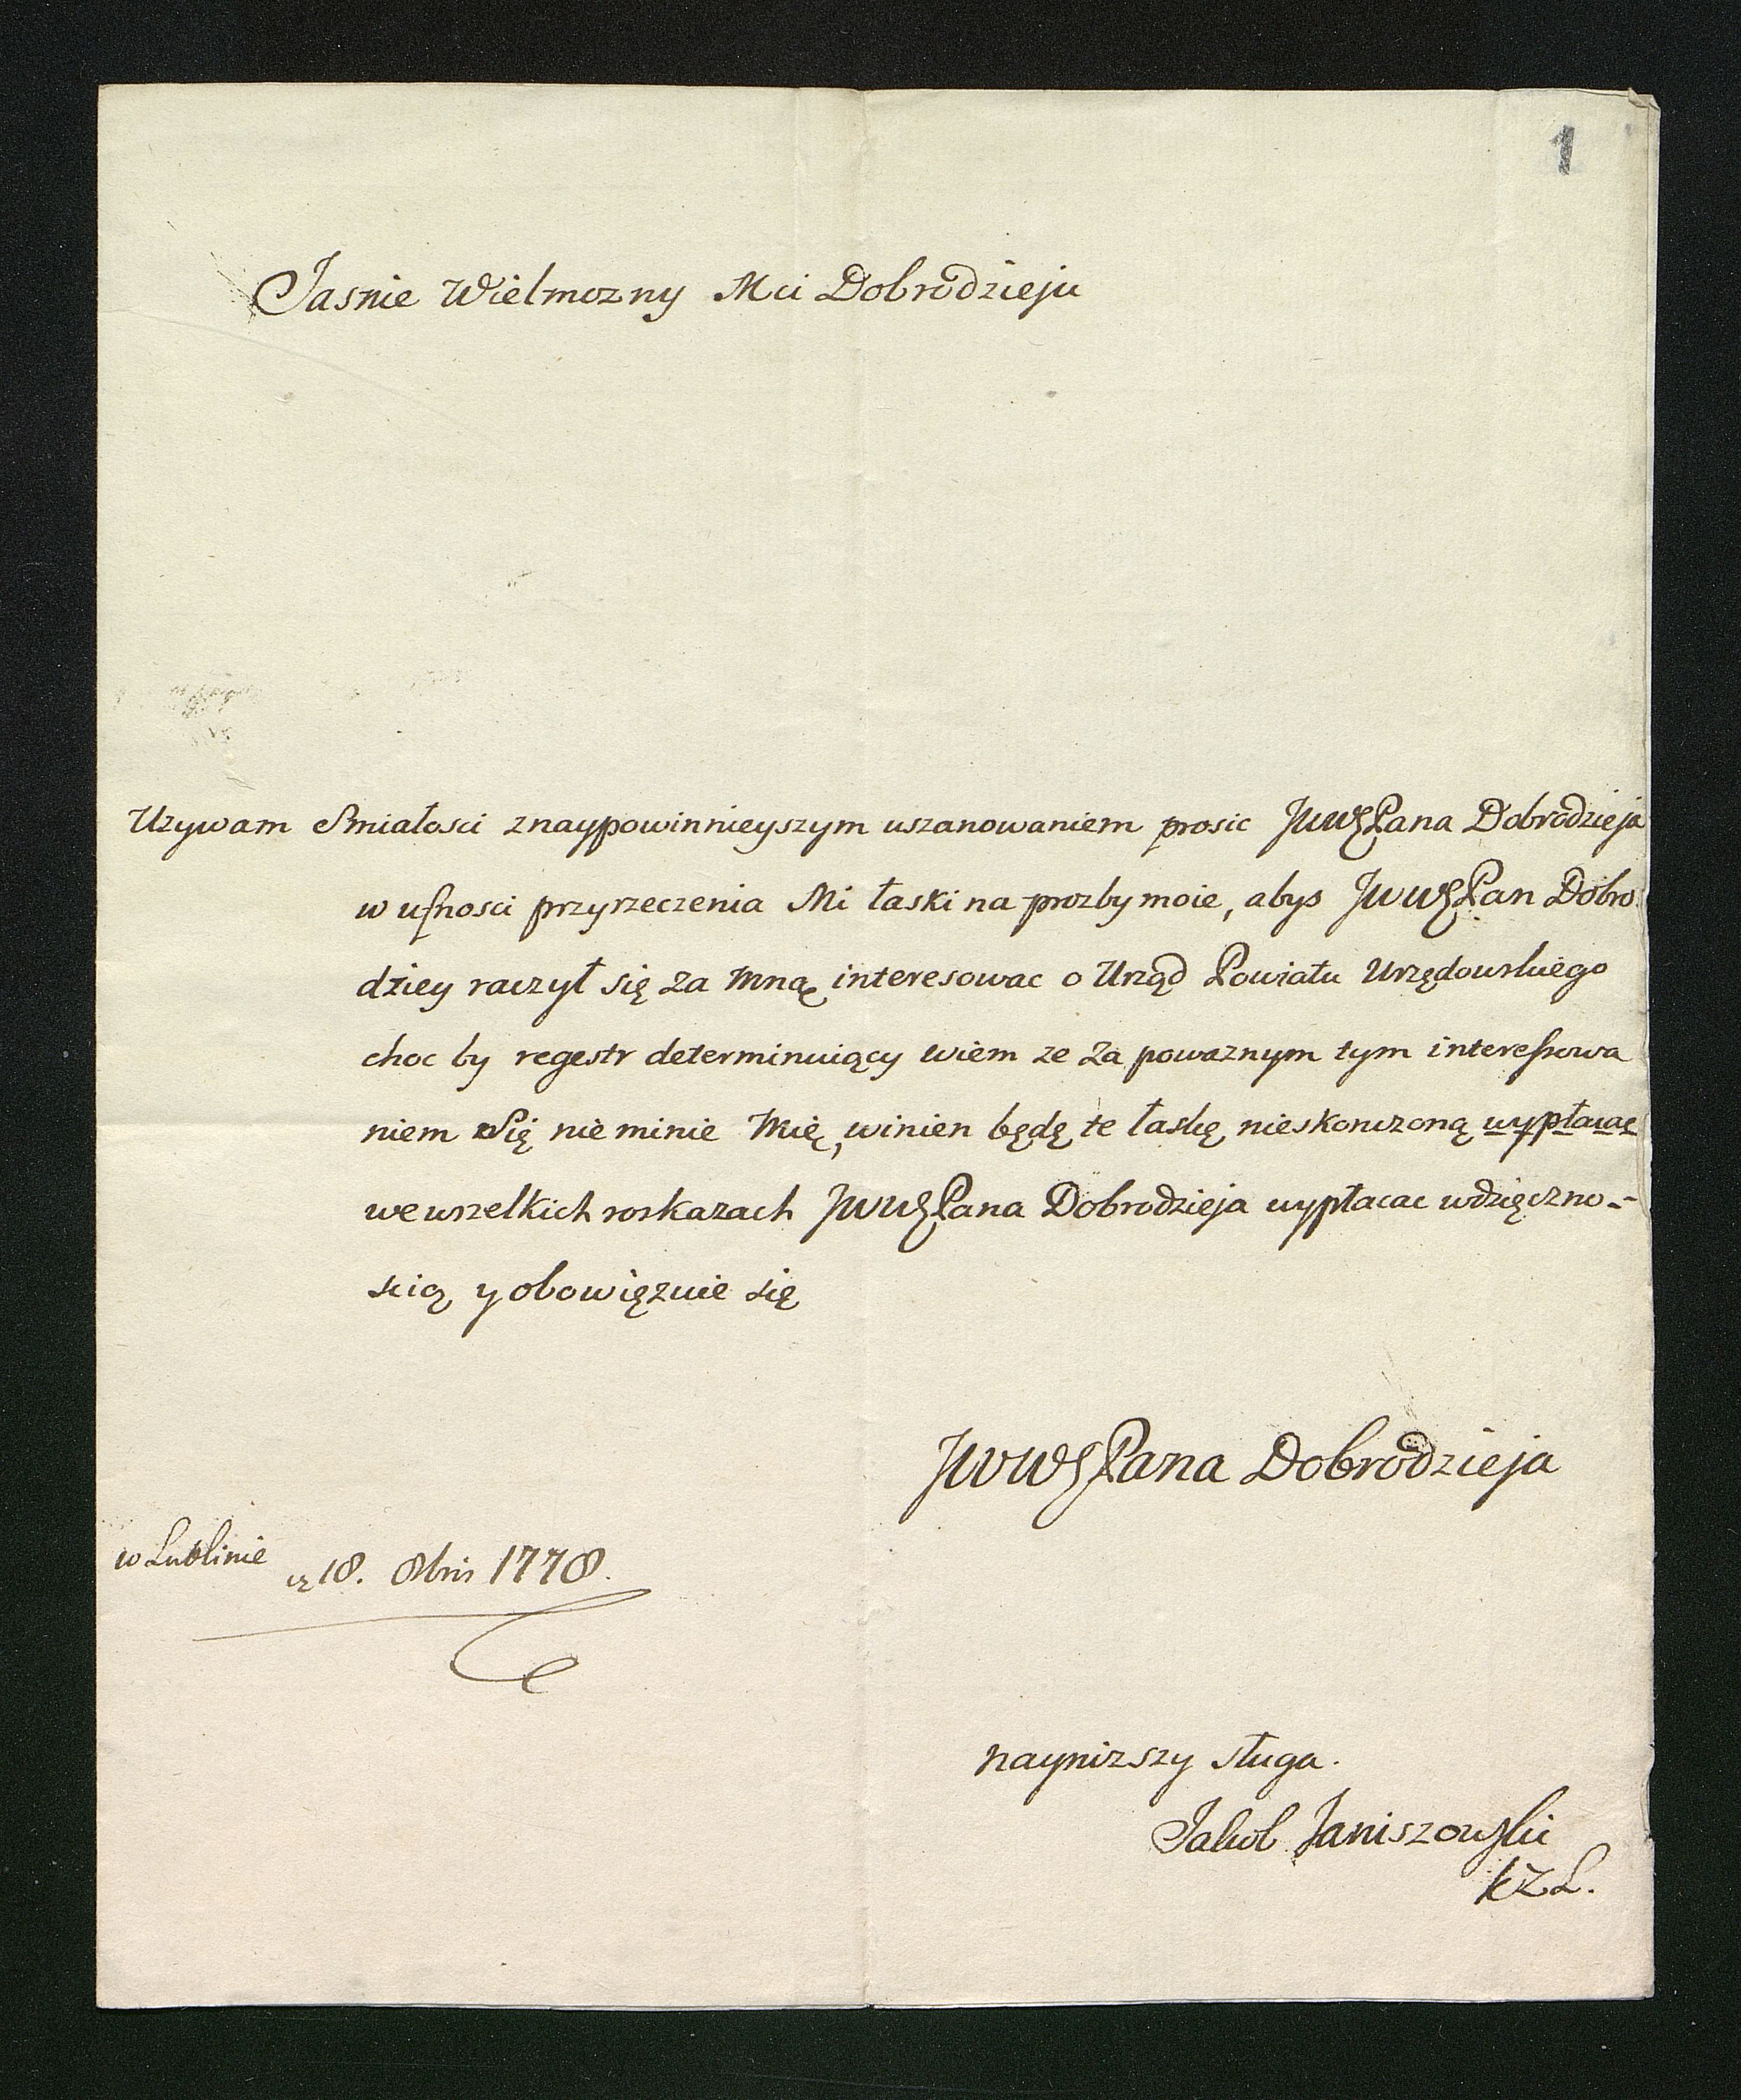 1
Jasnie Wielmozny Mci Dobrodzieju
Uzywam Smiałosci znaypowinnieyszym uszanowaniem prosic JWWPana Dobrodzieja
w ufnosci przyrzeczenia Mi łaski na prozby moie, abys JWWPan Dobro
dziey raczył się za mną interesowac o Urząd Powiatu Urzędowskiego
choc by regestr determinuiący wiem ze za powaznym tym interessowa
niem Się nie minie Mię, winien będę te łaskę nieskonczoną wypłacac
we wszelkich roskazach JWWPana Dobrodzieja wypłacac wdzięczno-
scią y obowięzuie się
JWWPana Dobrodzieja
w Lublinie 18. 8bris 1778.
nayniszszy sługa.
Jakub Janiszowski
KZL.